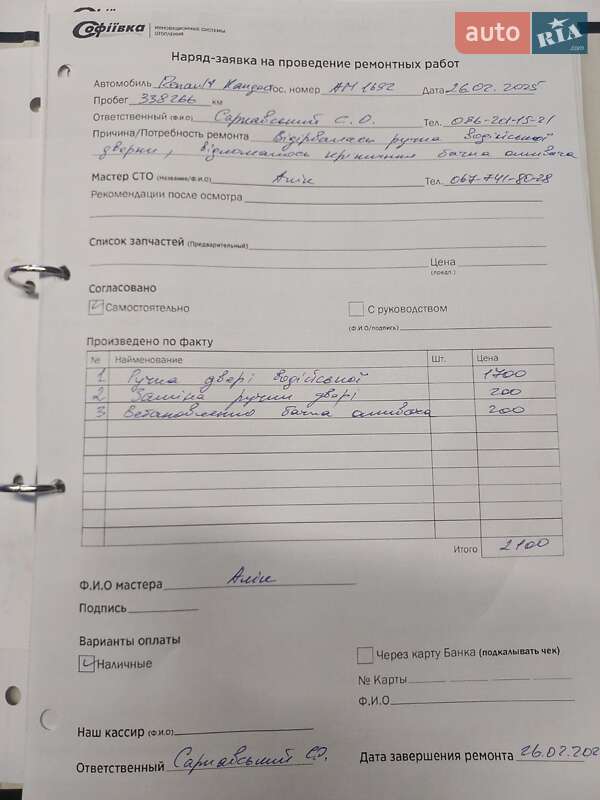 Софіївка
ИННОВАЦИОННЫЕ СИСТЕМЫ ОТОПЛЕНИЯ
auto RIA.com
Наряд-заявка на проведение ремонтных работ
Автомобиль Renault Кангоо Гос. номер АМ 1692 Дата 26.02.2025
Пробег 338266 км
Ответственный (Ф.И.О) Сарнавський С. О. Тел. 096-201-15-21
Причина/Потребность ремонта Відірвалась ручка водійської
дверки, відломалось кріплення бачка омивача
Мастер СТО (Название/Ф.И.О) Алік Тел. 067-741-80-28
Рекомендации после осмотра
Список запчастей (Предварительный)
Цена
(предп.)
Согласовано
Самостоятельно С руководством
(Ф.И.О/подпись)
Произведено по факту
№ Наименование Шт. Цена
1 Ручка двері водійської 1700
2 Заміна ручки двері 200
3 Встановлено бачка омивача 200
Итого 2100
Ф.И.О мастера Алік
Подпись
Варианты оплаты
Наличные Через карту Банка (подкалывать чек)
№ Карты
Ф.И.О
Наш кассир (Ф.И.О)
Ответственный Сарнавський С.О. Дата завершения ремонта 26.02.202